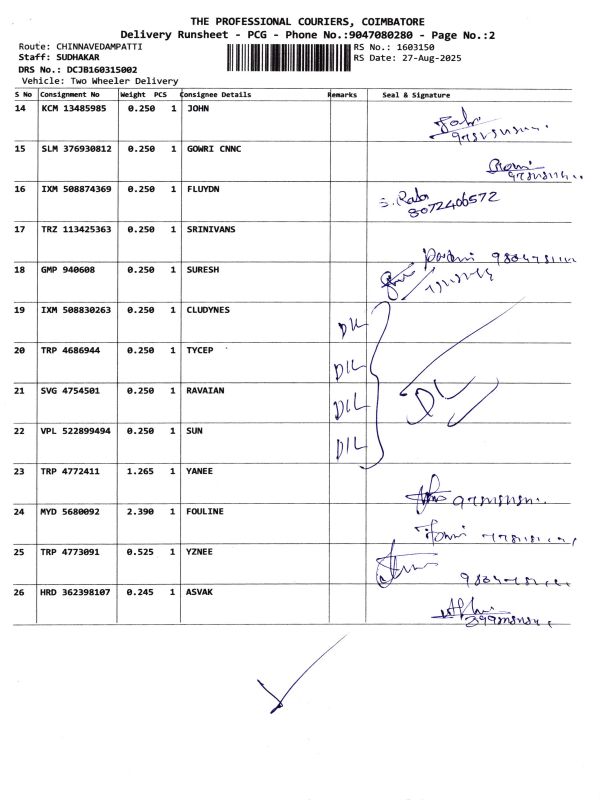 THE PROFESSIONAL COURIERS, COIMBATORE
Delivery Runsheet - PCG - Phone No.:9047080280 - Page No.:2
Route: CHINNAVEDAMPATTI
RS No.: 1603150
Staff: SUDHAKAR
RS Date: 27-Aug-2025
DRS No.: DCJB160315002
Vehicle: Two Wheeler Delivery
S No Consignment No Weight PCS Consignee Details Remarks Seal & Signature
14 KCM 13485985 0.250 1 JOHN
15 SLM 376930812 0.250 1 GOWRI CNNC
16 IXM 508874369 0.250 1 FLUYDN
8072406572
17 TRZ 113425363 0.250 1 SRINIVANS
18 GMP 940608 0.250 1 SURESH
19 IXM 508830263 0.250 1 CLUDYNES D/L
20 TRP 4686944 0.250 1 TYCEP D/L
21 SVG 4754501 0.250 1 RAVAIAN D/L DL
22 VPL 522899494 0.250 1 SUN D/L
23 TRP 4772411 1.265 1 YANEE
24 MYD 5680092 2.390 1 FOULINE
25 TRP 4773091 0.525 1 YZNEE
26 HRD 362398107 0.245 1 ASVAK